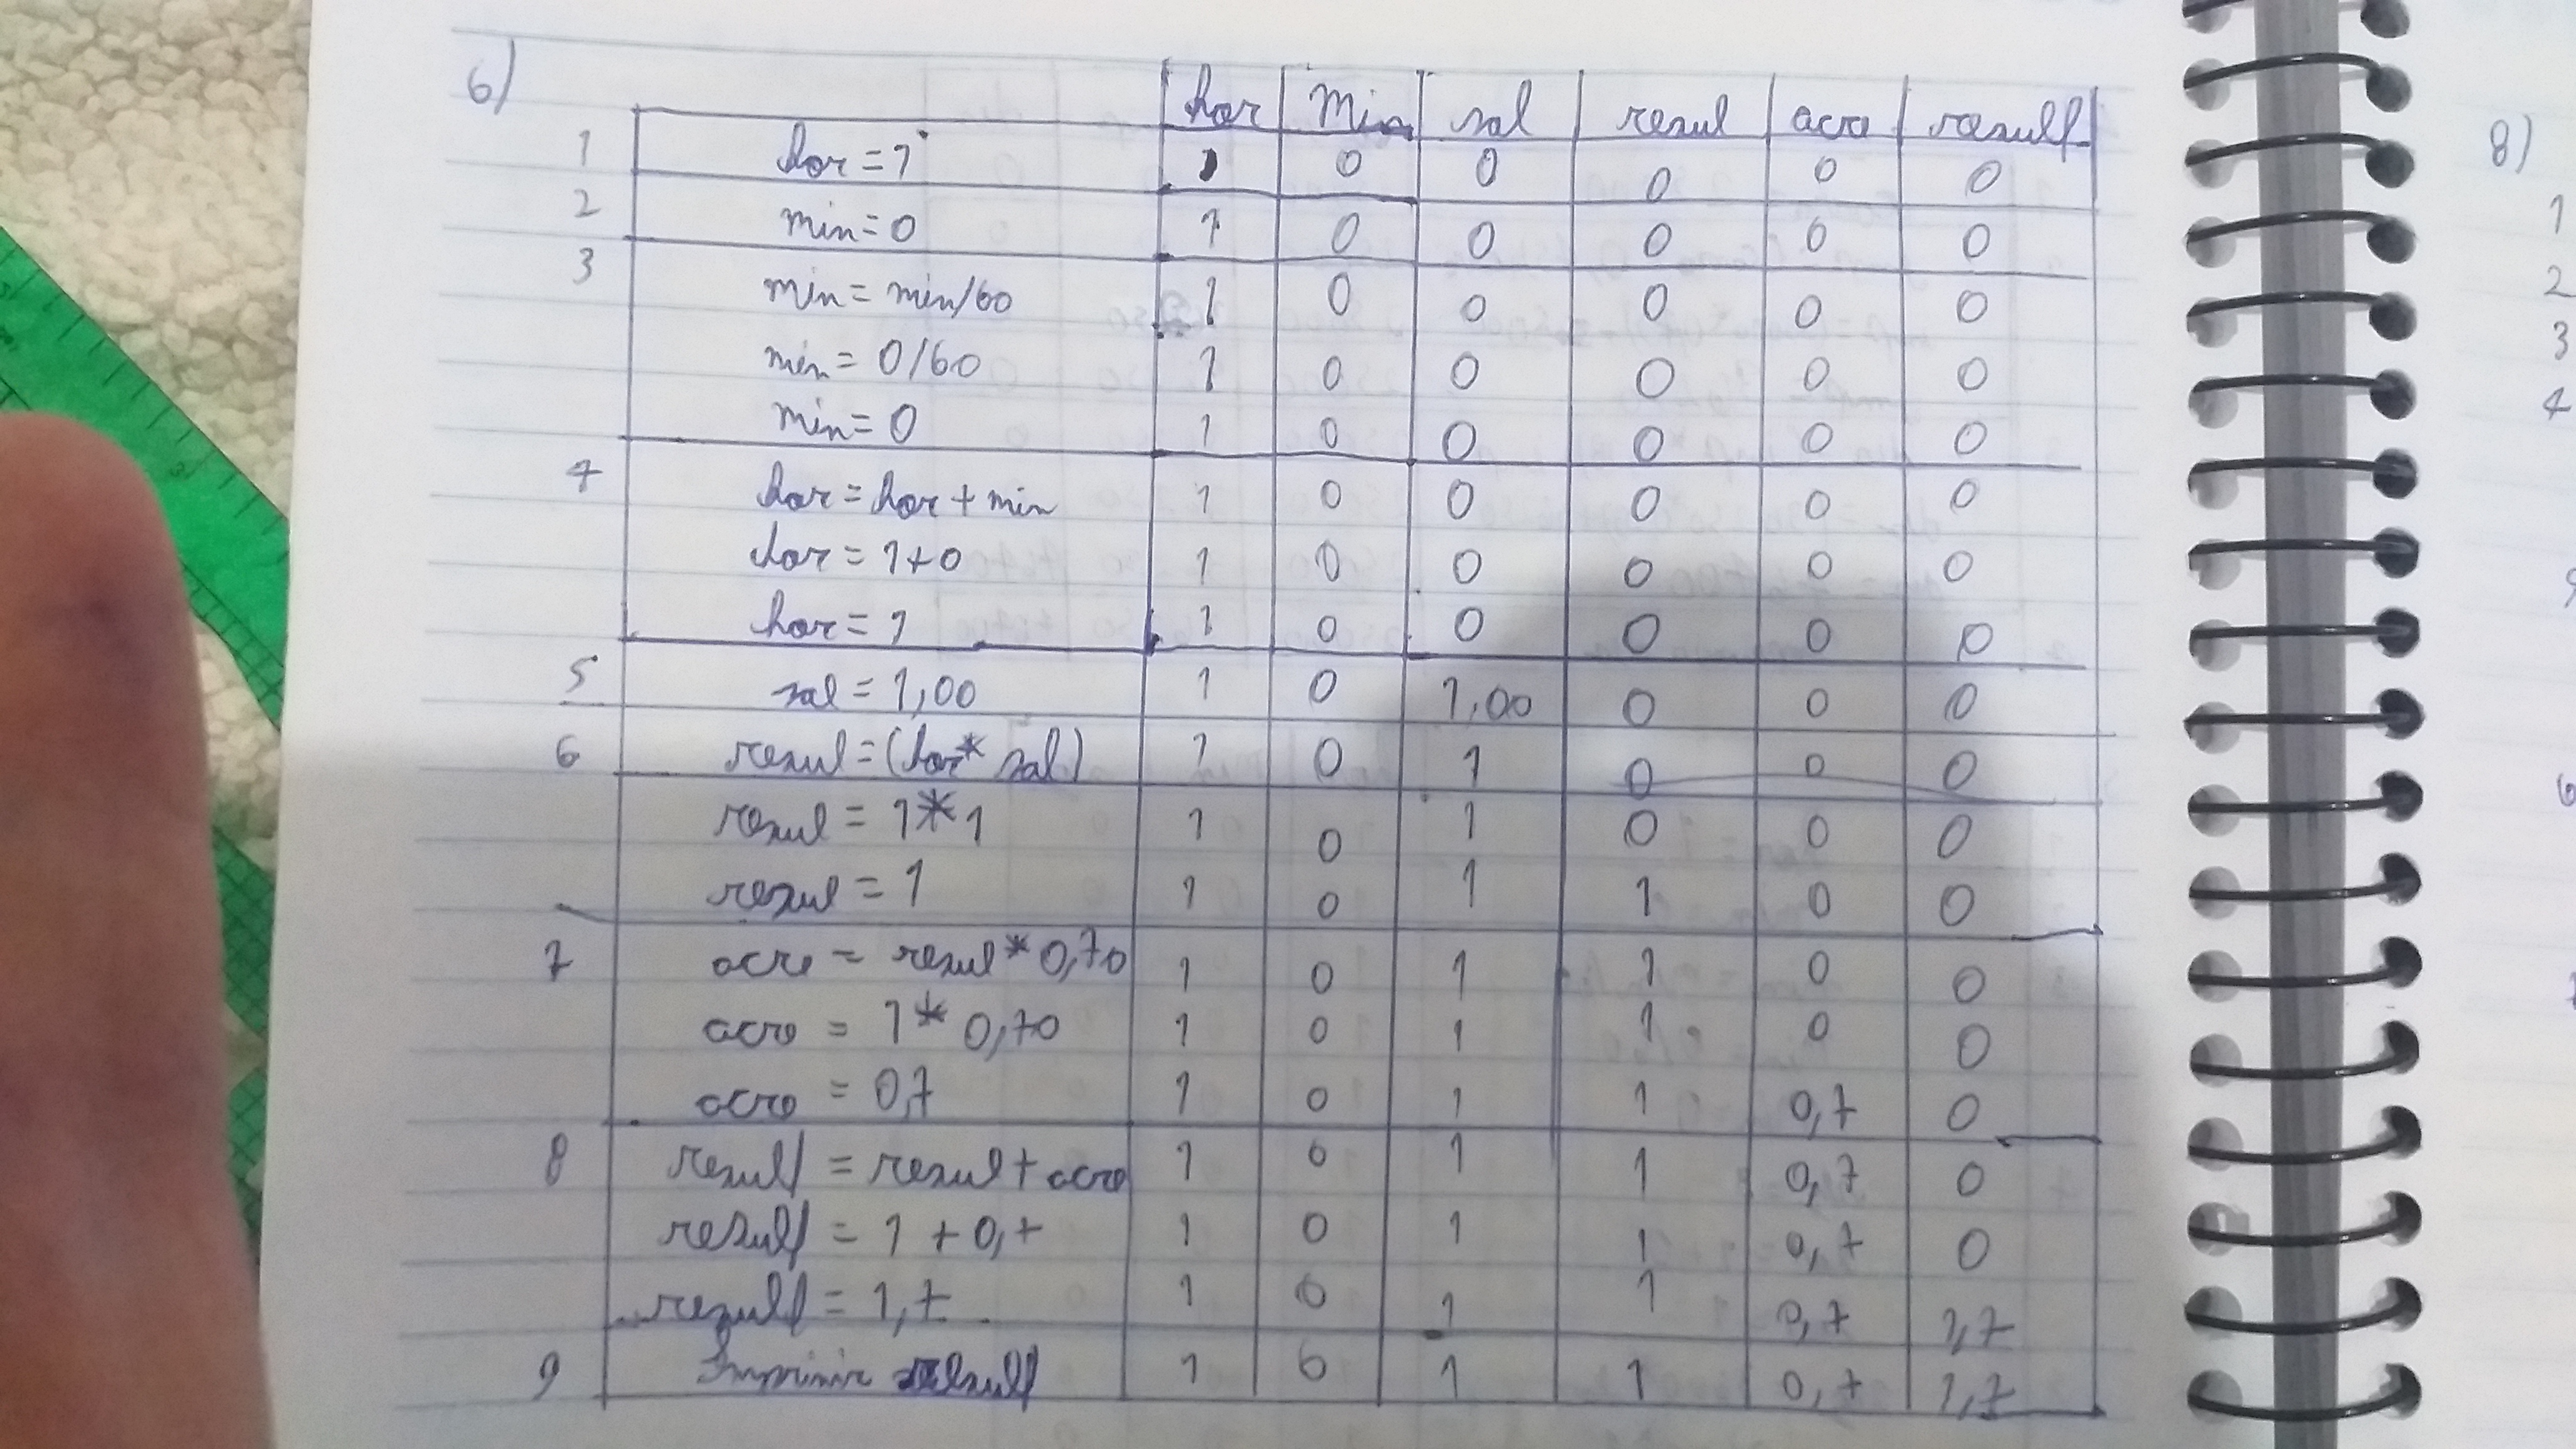 6)
hor Min sal resul acre resulf
1 hor = 1 1 0 0 0 0 0
2 min = 0 1 0 0 0 0 0
3 min = min/60 1 0 0 0 0 0
min = 0/60 1 0 0 0 0 0
min = 0 1 0 0 0 0 0
4 hor = hor + min 1 0 0 0 0 0
hor = 1+0 1 0 0 0 0 0
hor = 1 1 0 0 0 0 0
5 sal = 1,00 1 0 1,00 0 0 0
6 resul = (hor* sal) 1 0 1 0 0 0
resul = 1*1 1 0 1 0 0 0
resul = 1 1 0 1 1 0 0
7 acre = resul * 0,70 1 0 1 1 0 0
acre = 1* 0,70 1 0 1 1 0 0
acre = 0,7 1 0 1 1 0,7 0
8 resulf = resul + acre 1 0 1 1 0,7 0
resulf = 1 + 0,7 1 0 1 1 0,7 0
resulf = 1,7 1 0 1 1 0,7 1,7
9 Imprimir resulf 1 0 1 1 0,7 1,7
8)
1
2
3
4
6